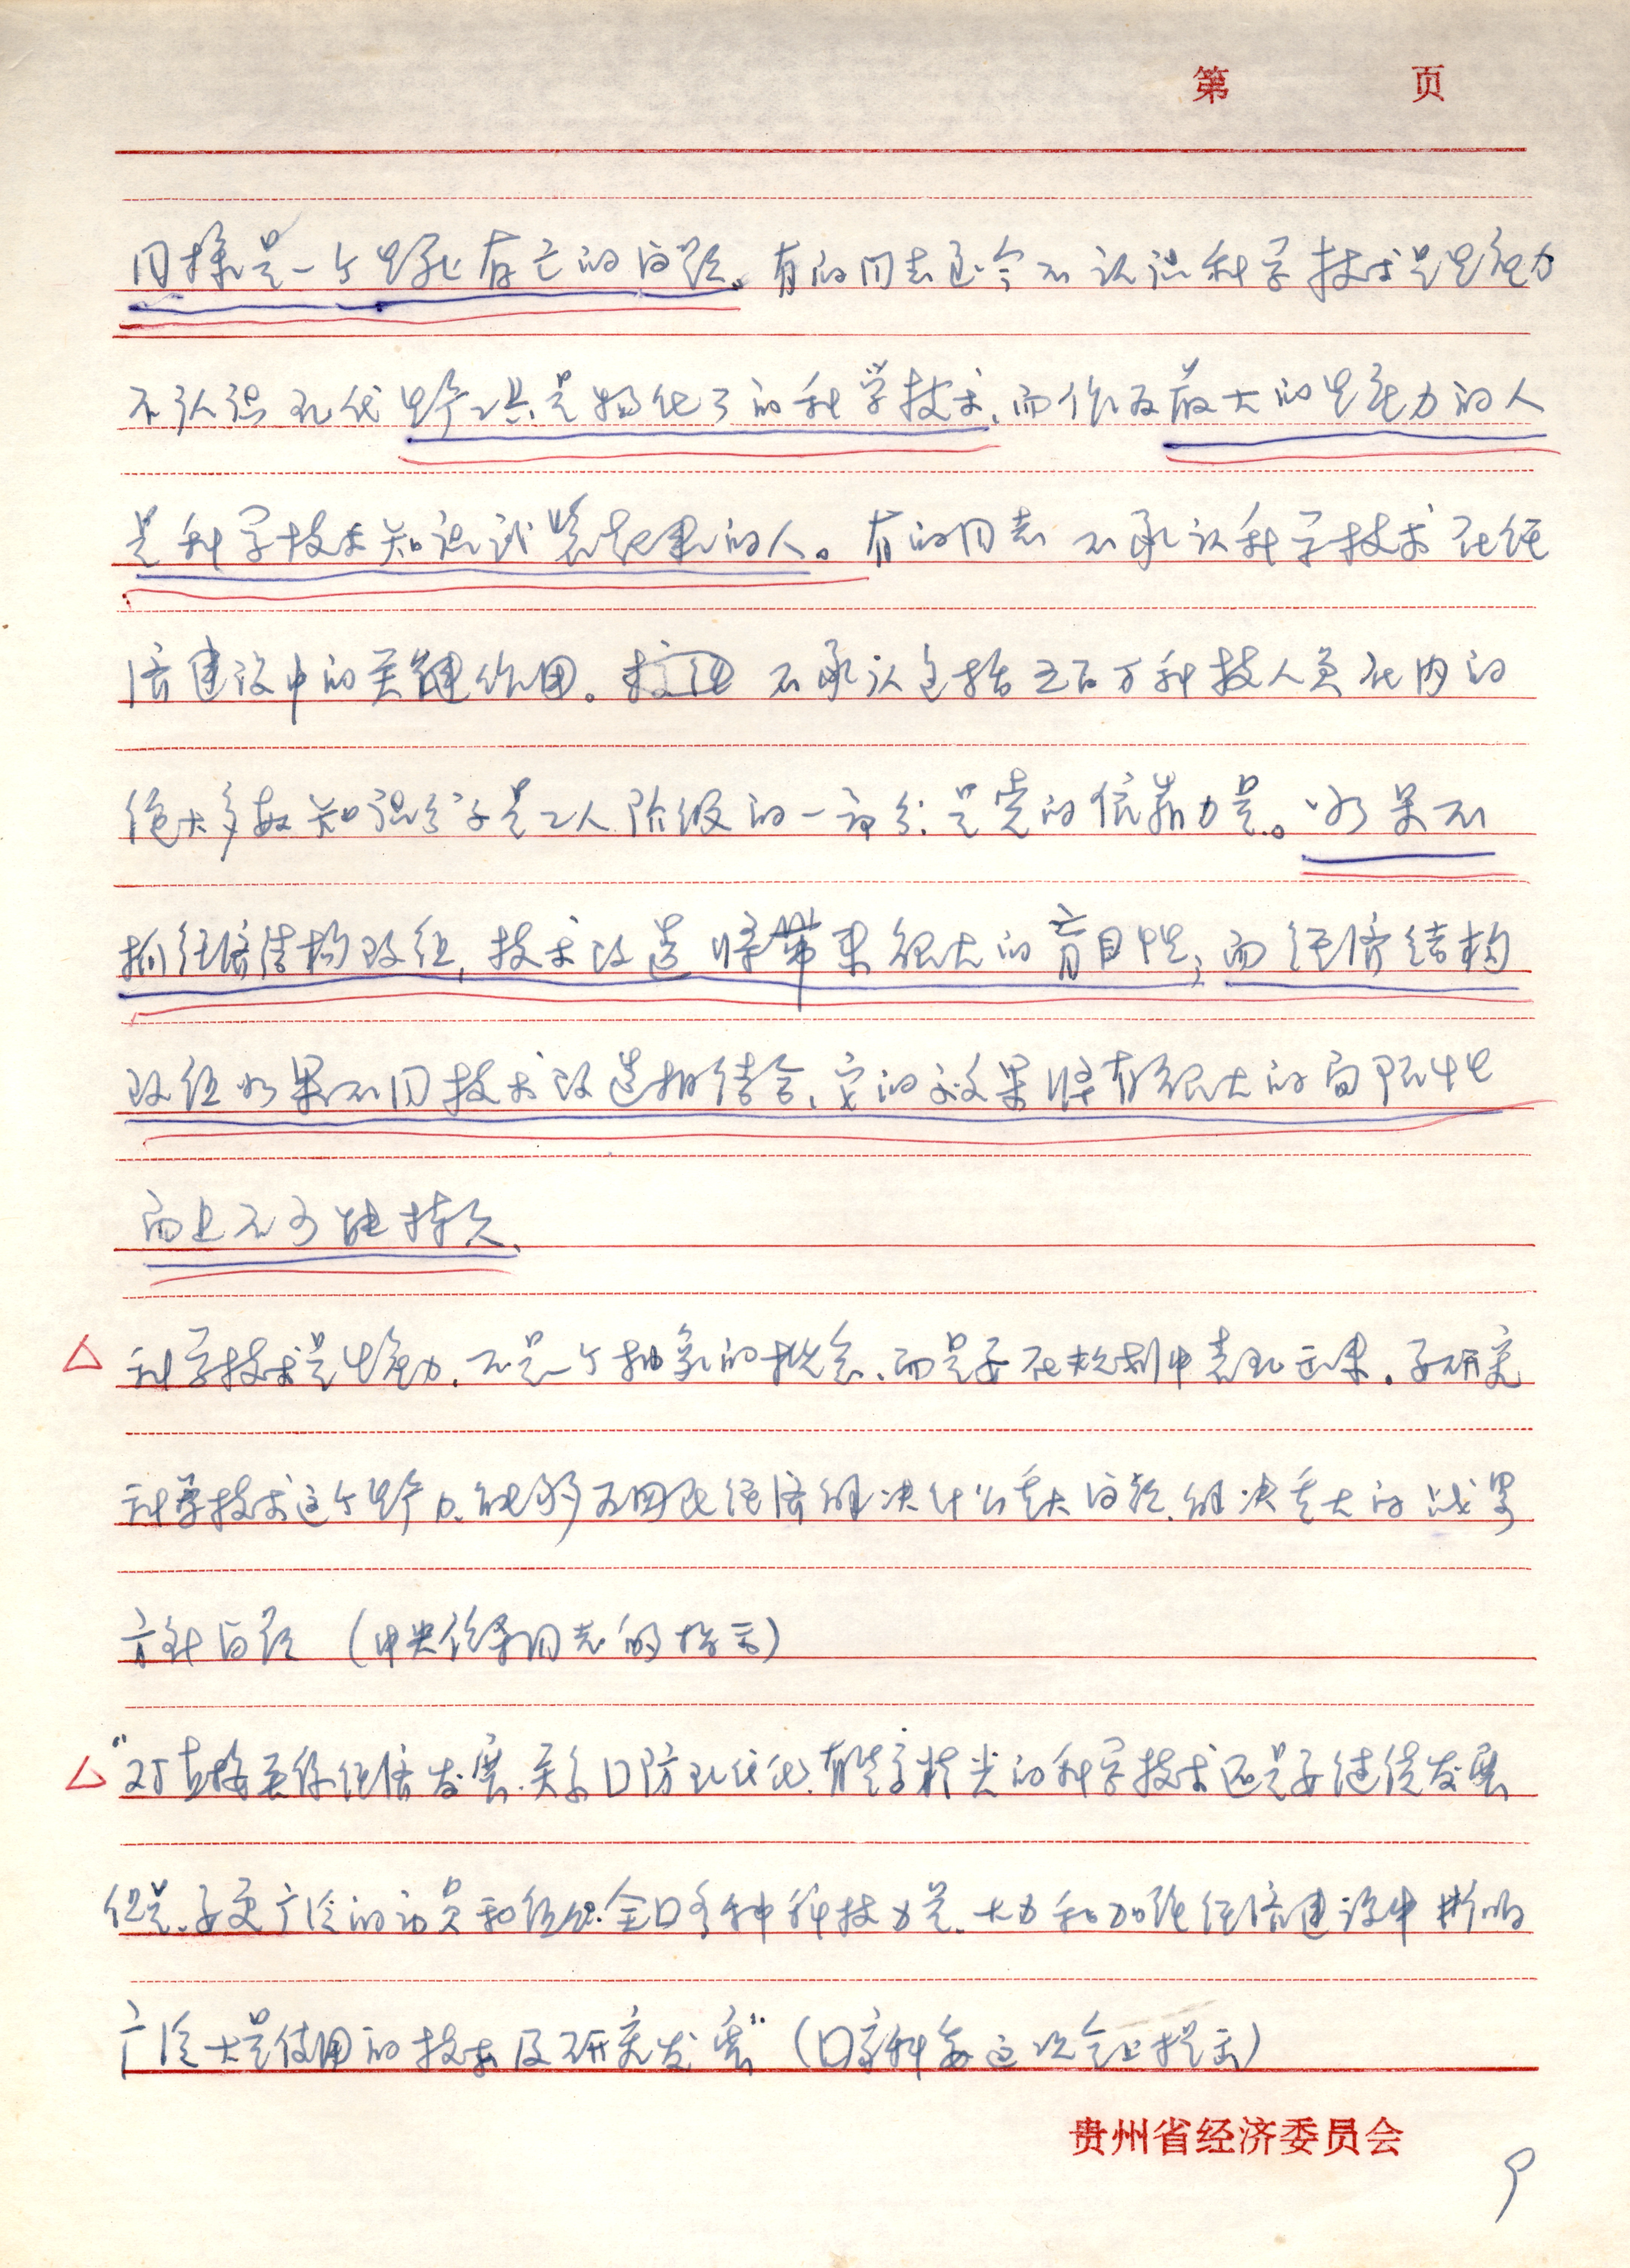 第 页
同样是一个生死存亡的问题。有的同志至今不认识科学技术是生产力
不认识现代生产工具是物化了的科学技术、而作为最大的生产力的人
是科学技术知识武装起来的人。有的同志不承认科学技术在经
济建设中的关键作用。不承认包括五百万科技人员在内的
绝大多数知识分子是工人阶级的一部分.是党的依靠力量。如果不
抓经济结构改组,技术改造将带来很大的盲目性;而经济结构
改组如果不同技术改造相结合、它的效果将有很大的局限性
而且不可能持久、
△ 科学技术是生产力.不是一个抽象的概念、而是要在规划中表现出来.要研究
科学技术这个生产力、能够为国民经济解决什么重大问题.解决重大的战略
方针问题 (中央领导同志的指示)
△ “对直接关系经济发展.关系口防现代化.有些字尖的科学技术还是要继续发展
但是、要更广泛的动员和组织.全口各种科技力量、大力和加强经济建设中
广泛大量使用的技术及研究发展” (口家科委这次会上提出)
贵州省经济委员会
9